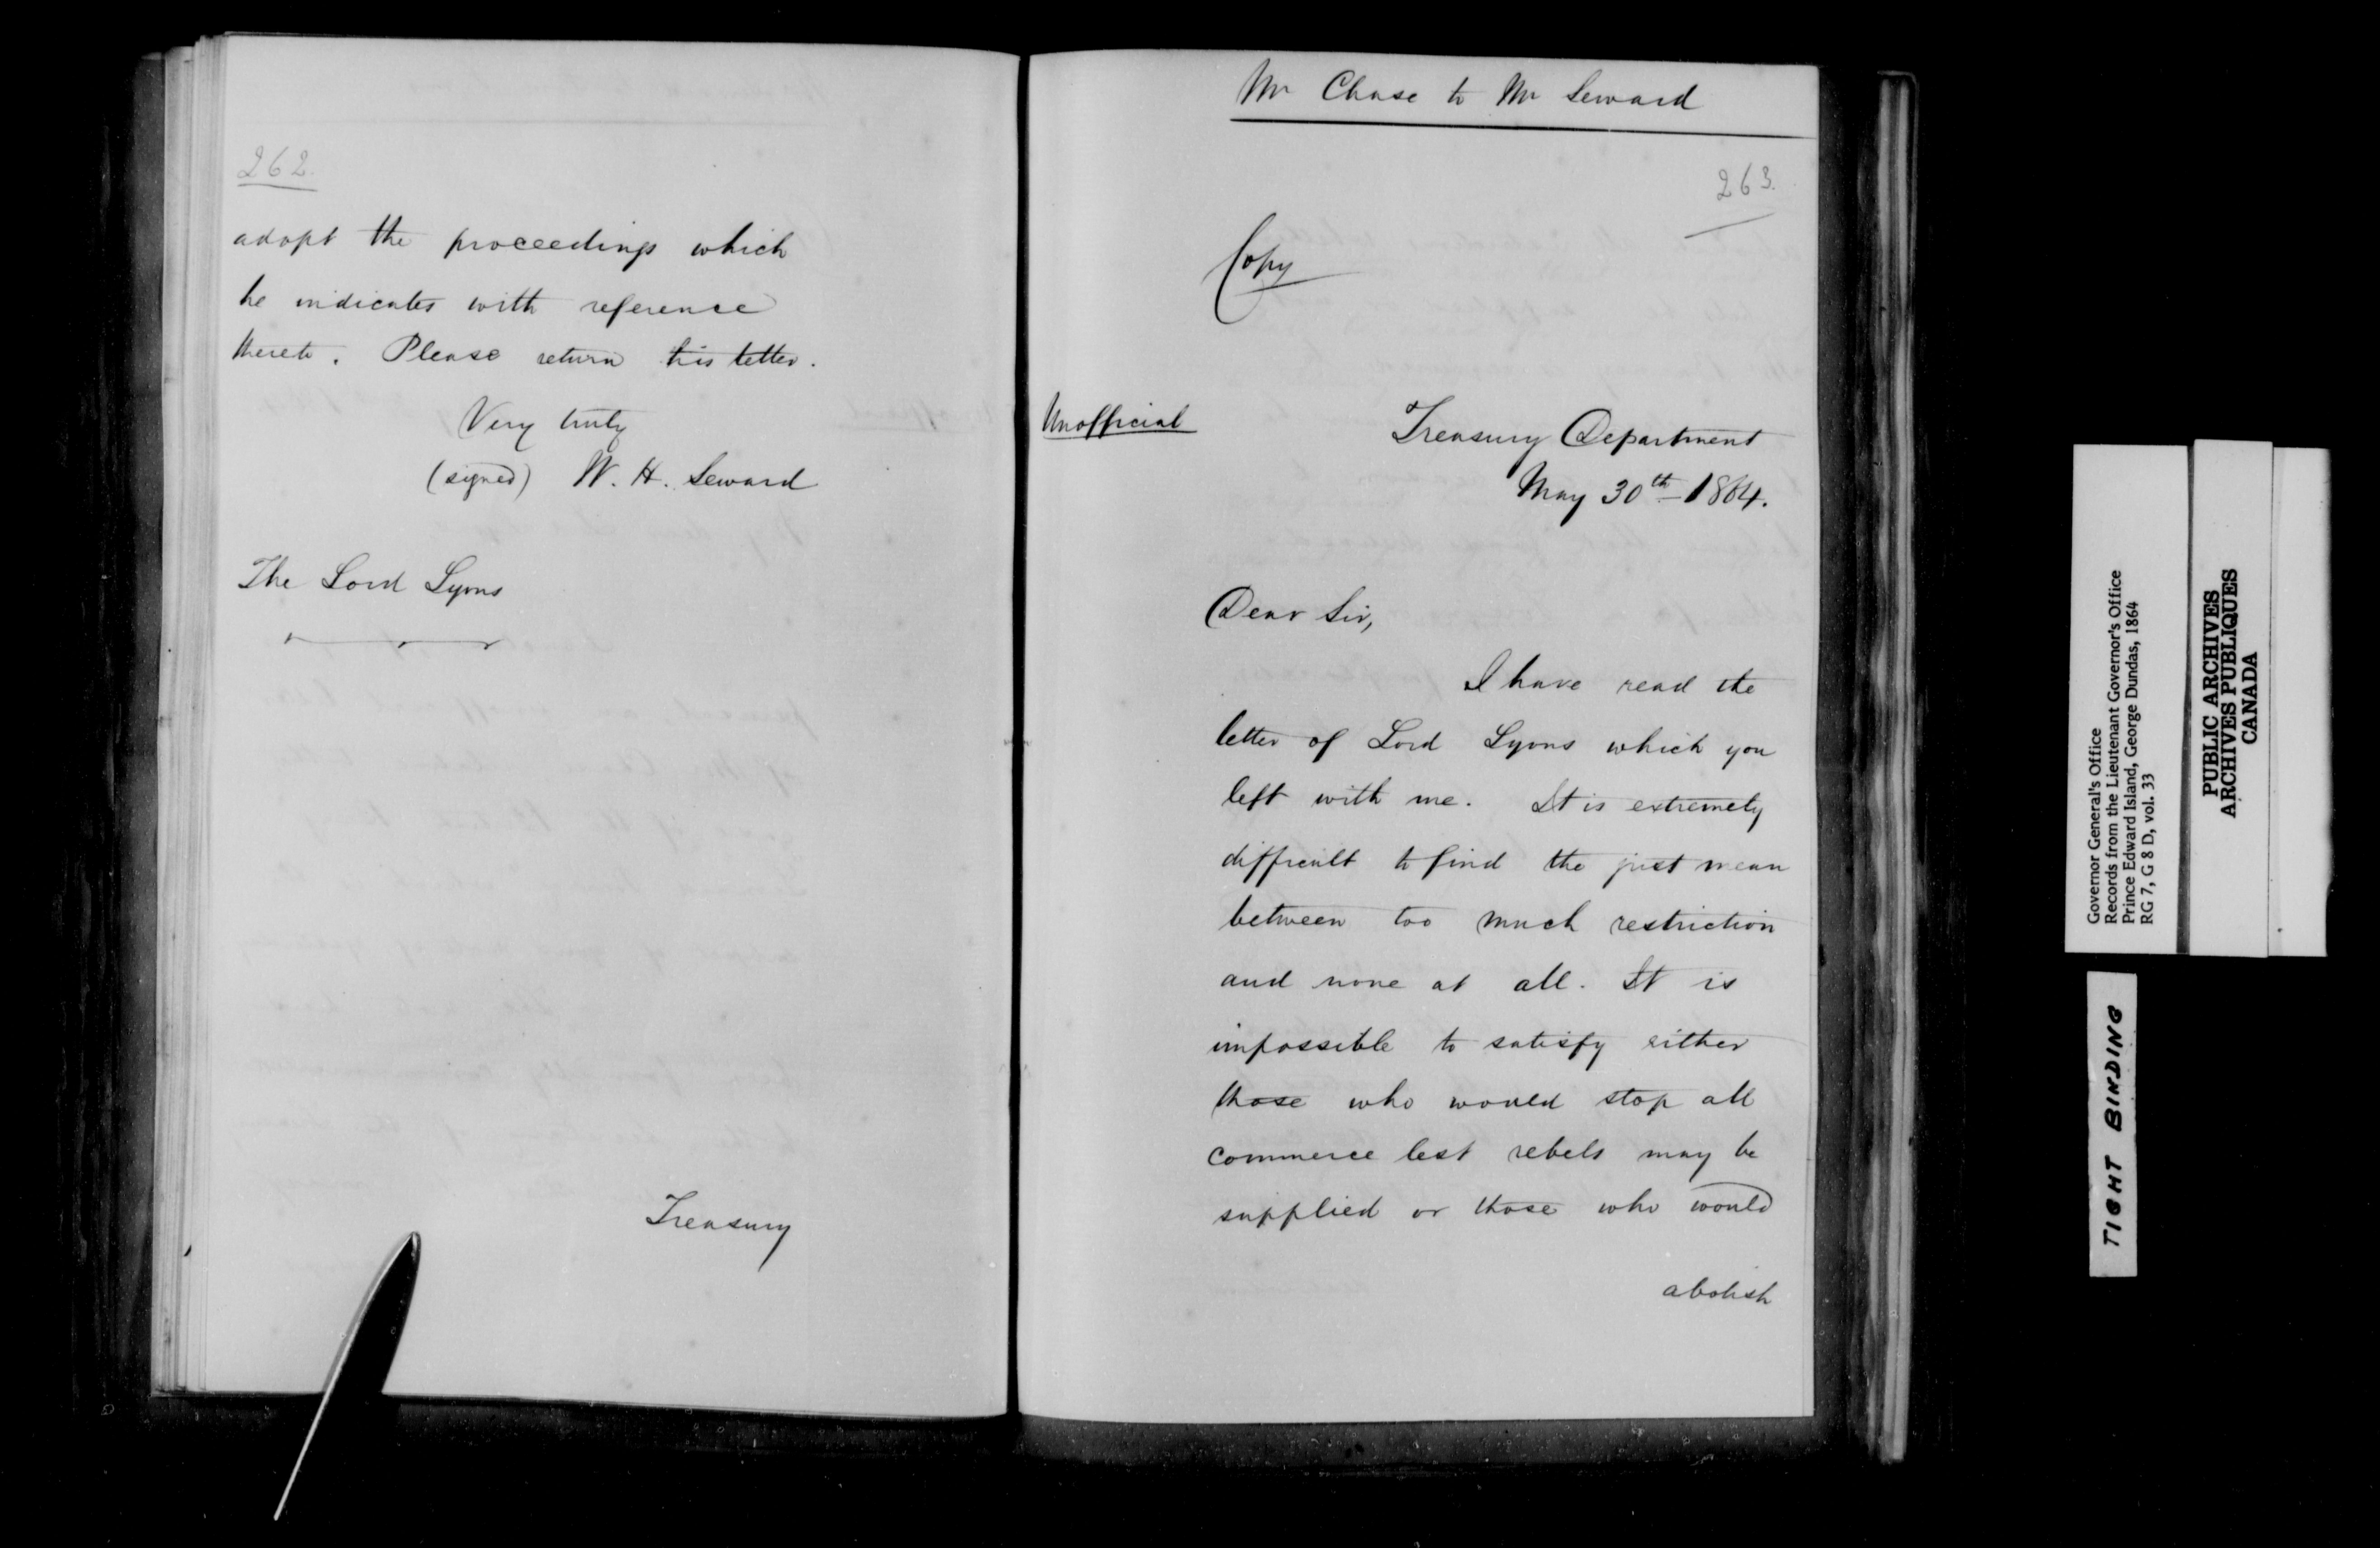 262.
adopt the proceedings which
he indicates with reference
thereto. Please return his letter.
Very truly
(signed) W. H. Seward
The Lord Lyons
Treasury
Mr Chase to Mr Seward
263.
Copy
Unofficial
Treasury Department
May 30th 1864.
Dear Sir,
I have read the
letter of Lord Lyons which you
left with me. It is extremely
difficult to find the just mean
between too much restriction
and none at all. It is
impossible to satisfy either
those who would stop all
commerce lest rebels may be
supplied or those who would
abolish
Governor General's Office
Records from the Lieutenant Governor's Office
Prince Edward Island, George Dundas, 1864
RG 7, G 8 D, vol. 33
PUBLIC ARCHIVES
ARCHIVES PUBLIQUES
CANADA
TIGHT BINDING